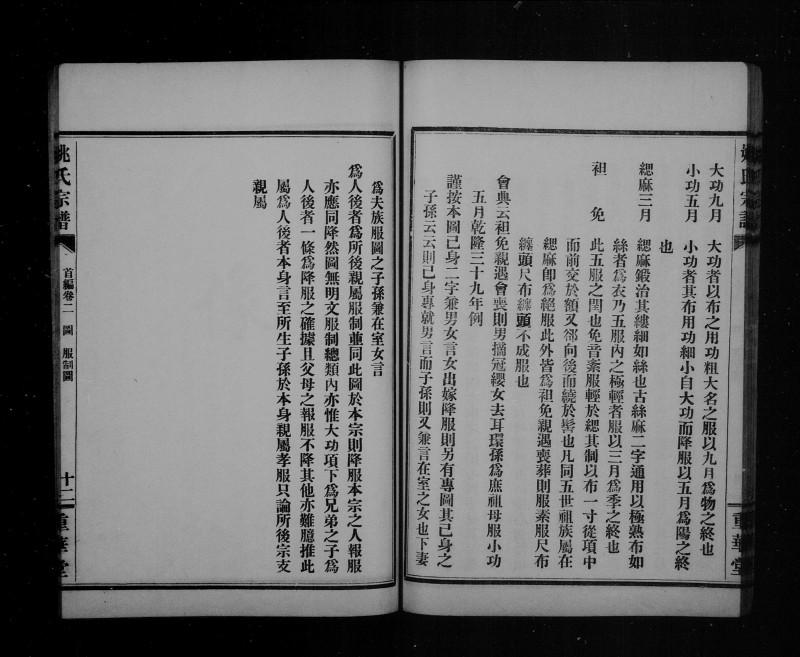 大功九月　大功者以布之用功粗大名之服以九月爲物之終也
小功五月　小功者其布用功細小自大功而降服以五月爲陽之終
也
緦麻三月　緦麻鍛治其縷細如絲也古絲麻二字通用以極熟布如
絲者爲衣乃五服內之極輕者服以三月爲季之終也
袒　免　此五服之閏也免音紊服輕於緦其制以布一寸從項中
而前交於額又郤向後而繞於髻也凡同五世祖族屬在
緦麻卽爲絕服此外皆爲袒免親遇喪葬則服素服尺布
纏頭尺布纏頭不成服也
會典云袒免親遇會喪則男摘冠纓女去耳環孫爲庶祖母服小功
五月乾隆三十九年例
謹按本圖己身二字兼男女言女出嫁降服則另有專圖其己身之
子孫云云則己身專就男言而子孫則又兼言在室之女也下妻
爲夫族服圖之子孫兼在室女言
爲人後者爲所後親屬服制並同此圖於本宗則降服本宗之人報服
亦應同降然圖無明文服制總類內亦惟大功項下爲兄弟之子爲
人後者一條爲降服之確據且父母之報服不降其他亦難臆推此
屬爲人後者本身言至所生子孫於本身親屬孝服只論所後宗支
親屬
姚氏宗譜　首編卷二　圖　服制圖　十二　重華堂
姚氏宗譜
重華堂